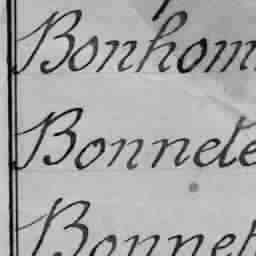 Bonhom
Bonnete
Bonnet